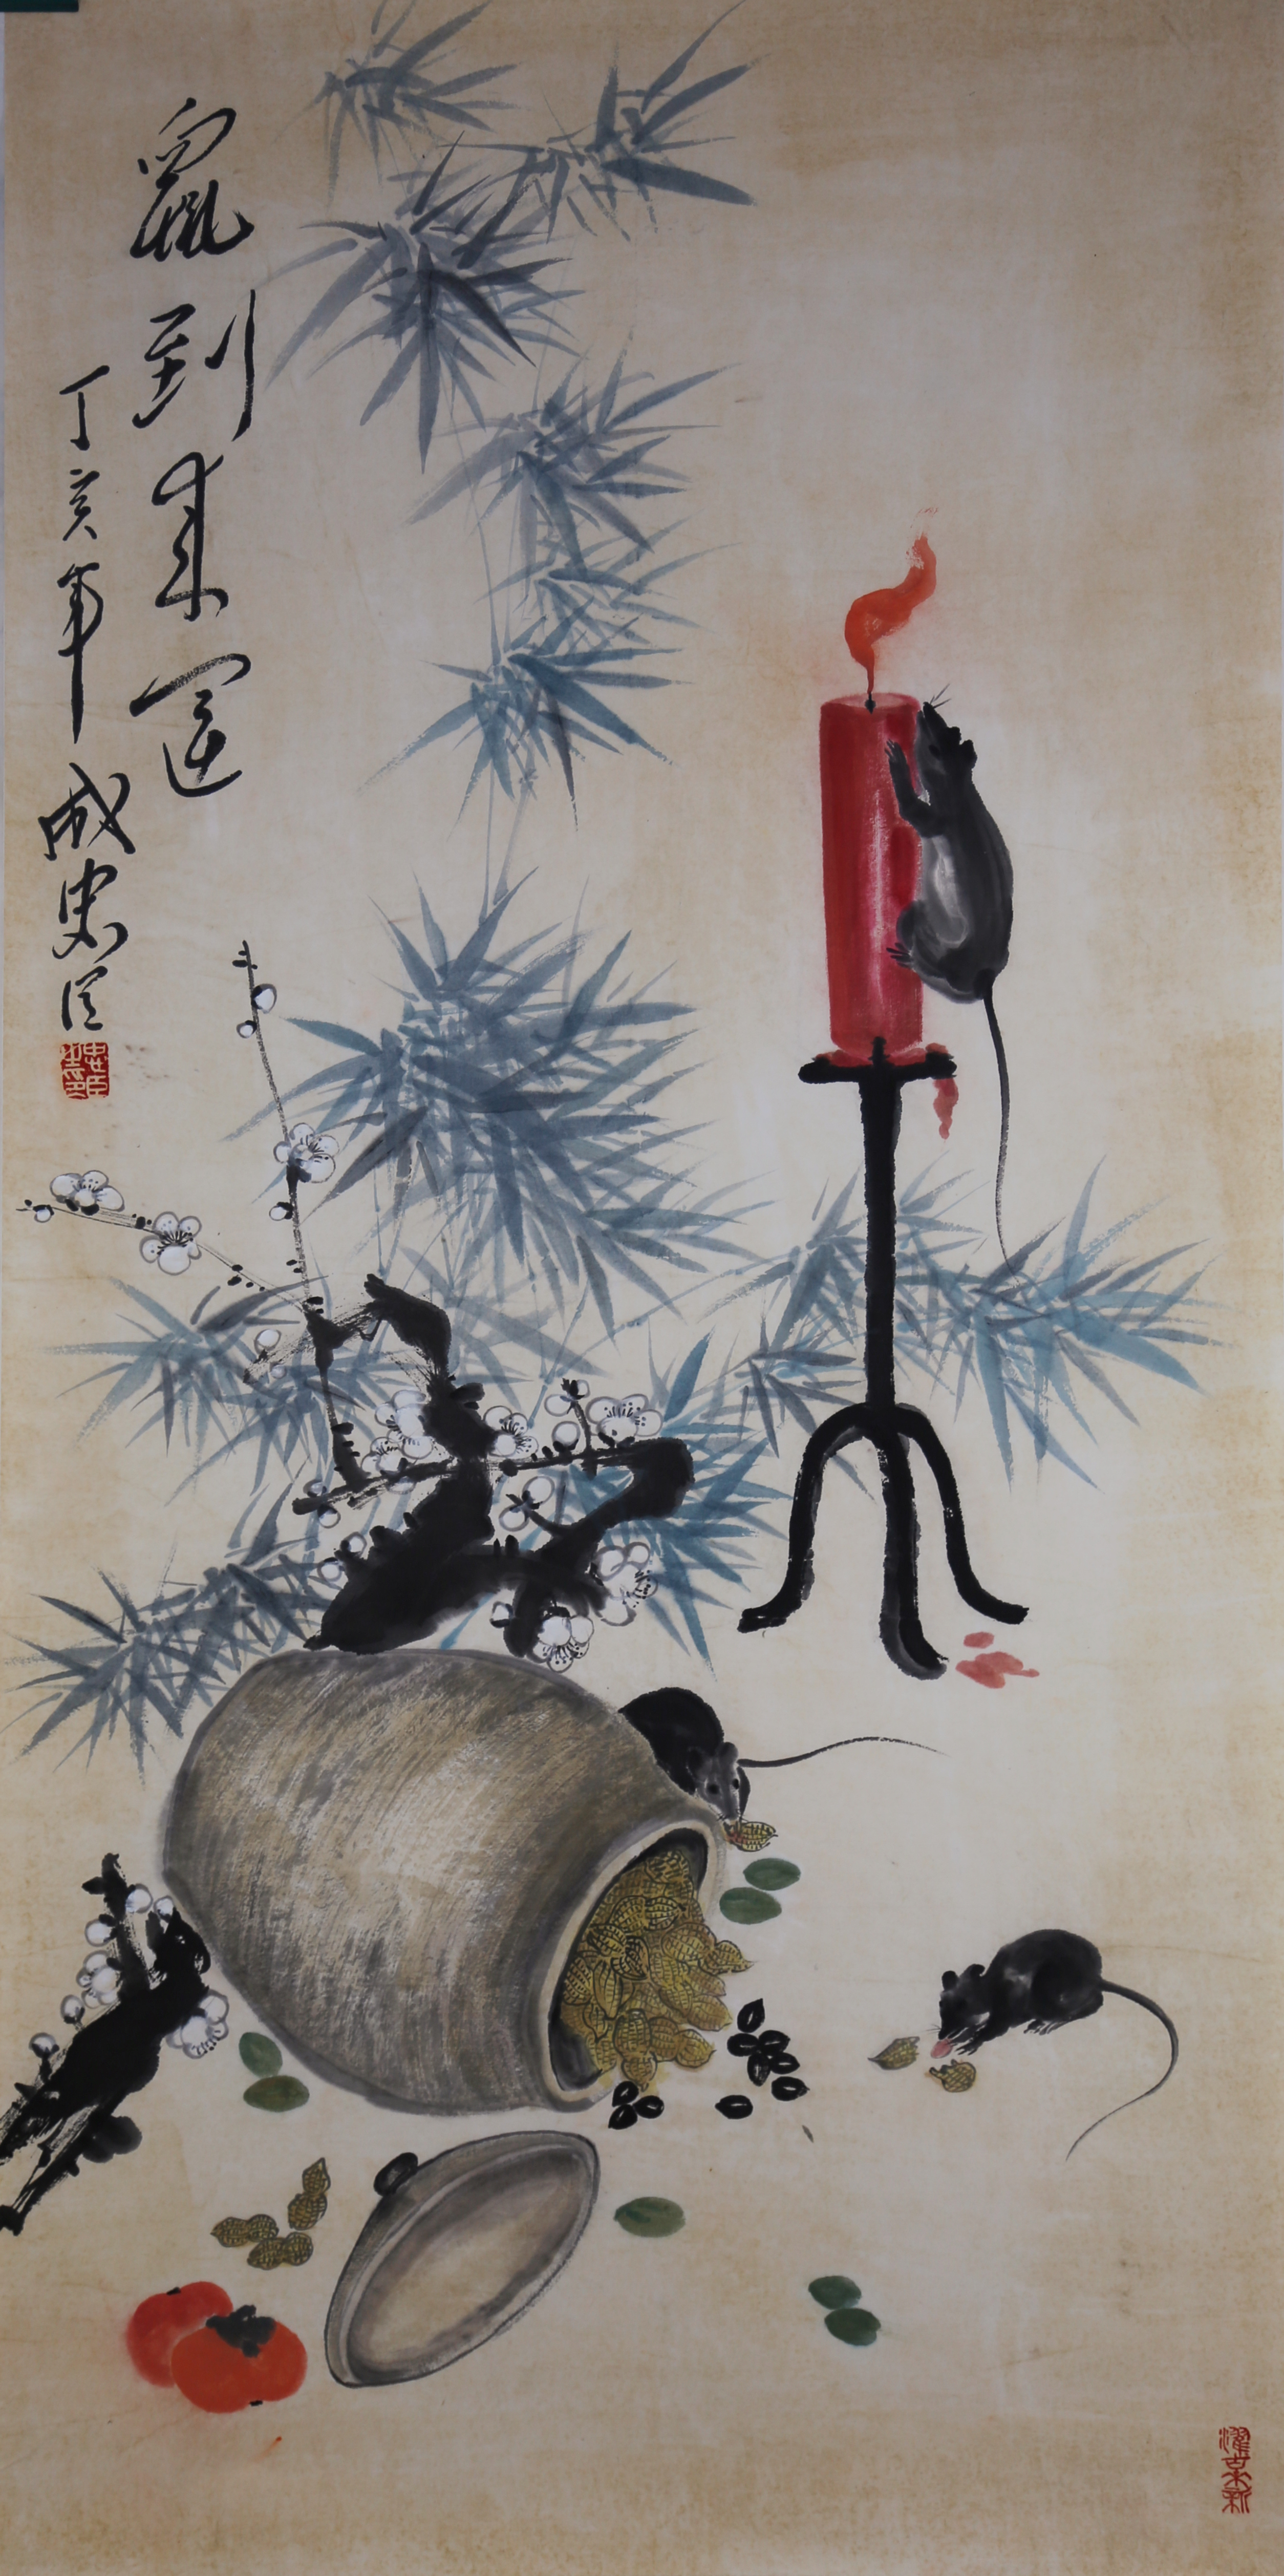 鼠到来運
丁亥年成忠